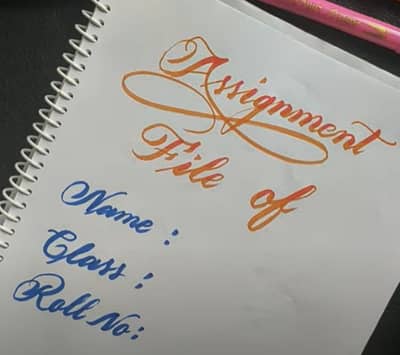 Assignment
File of
Name :
Class :
Roll No: